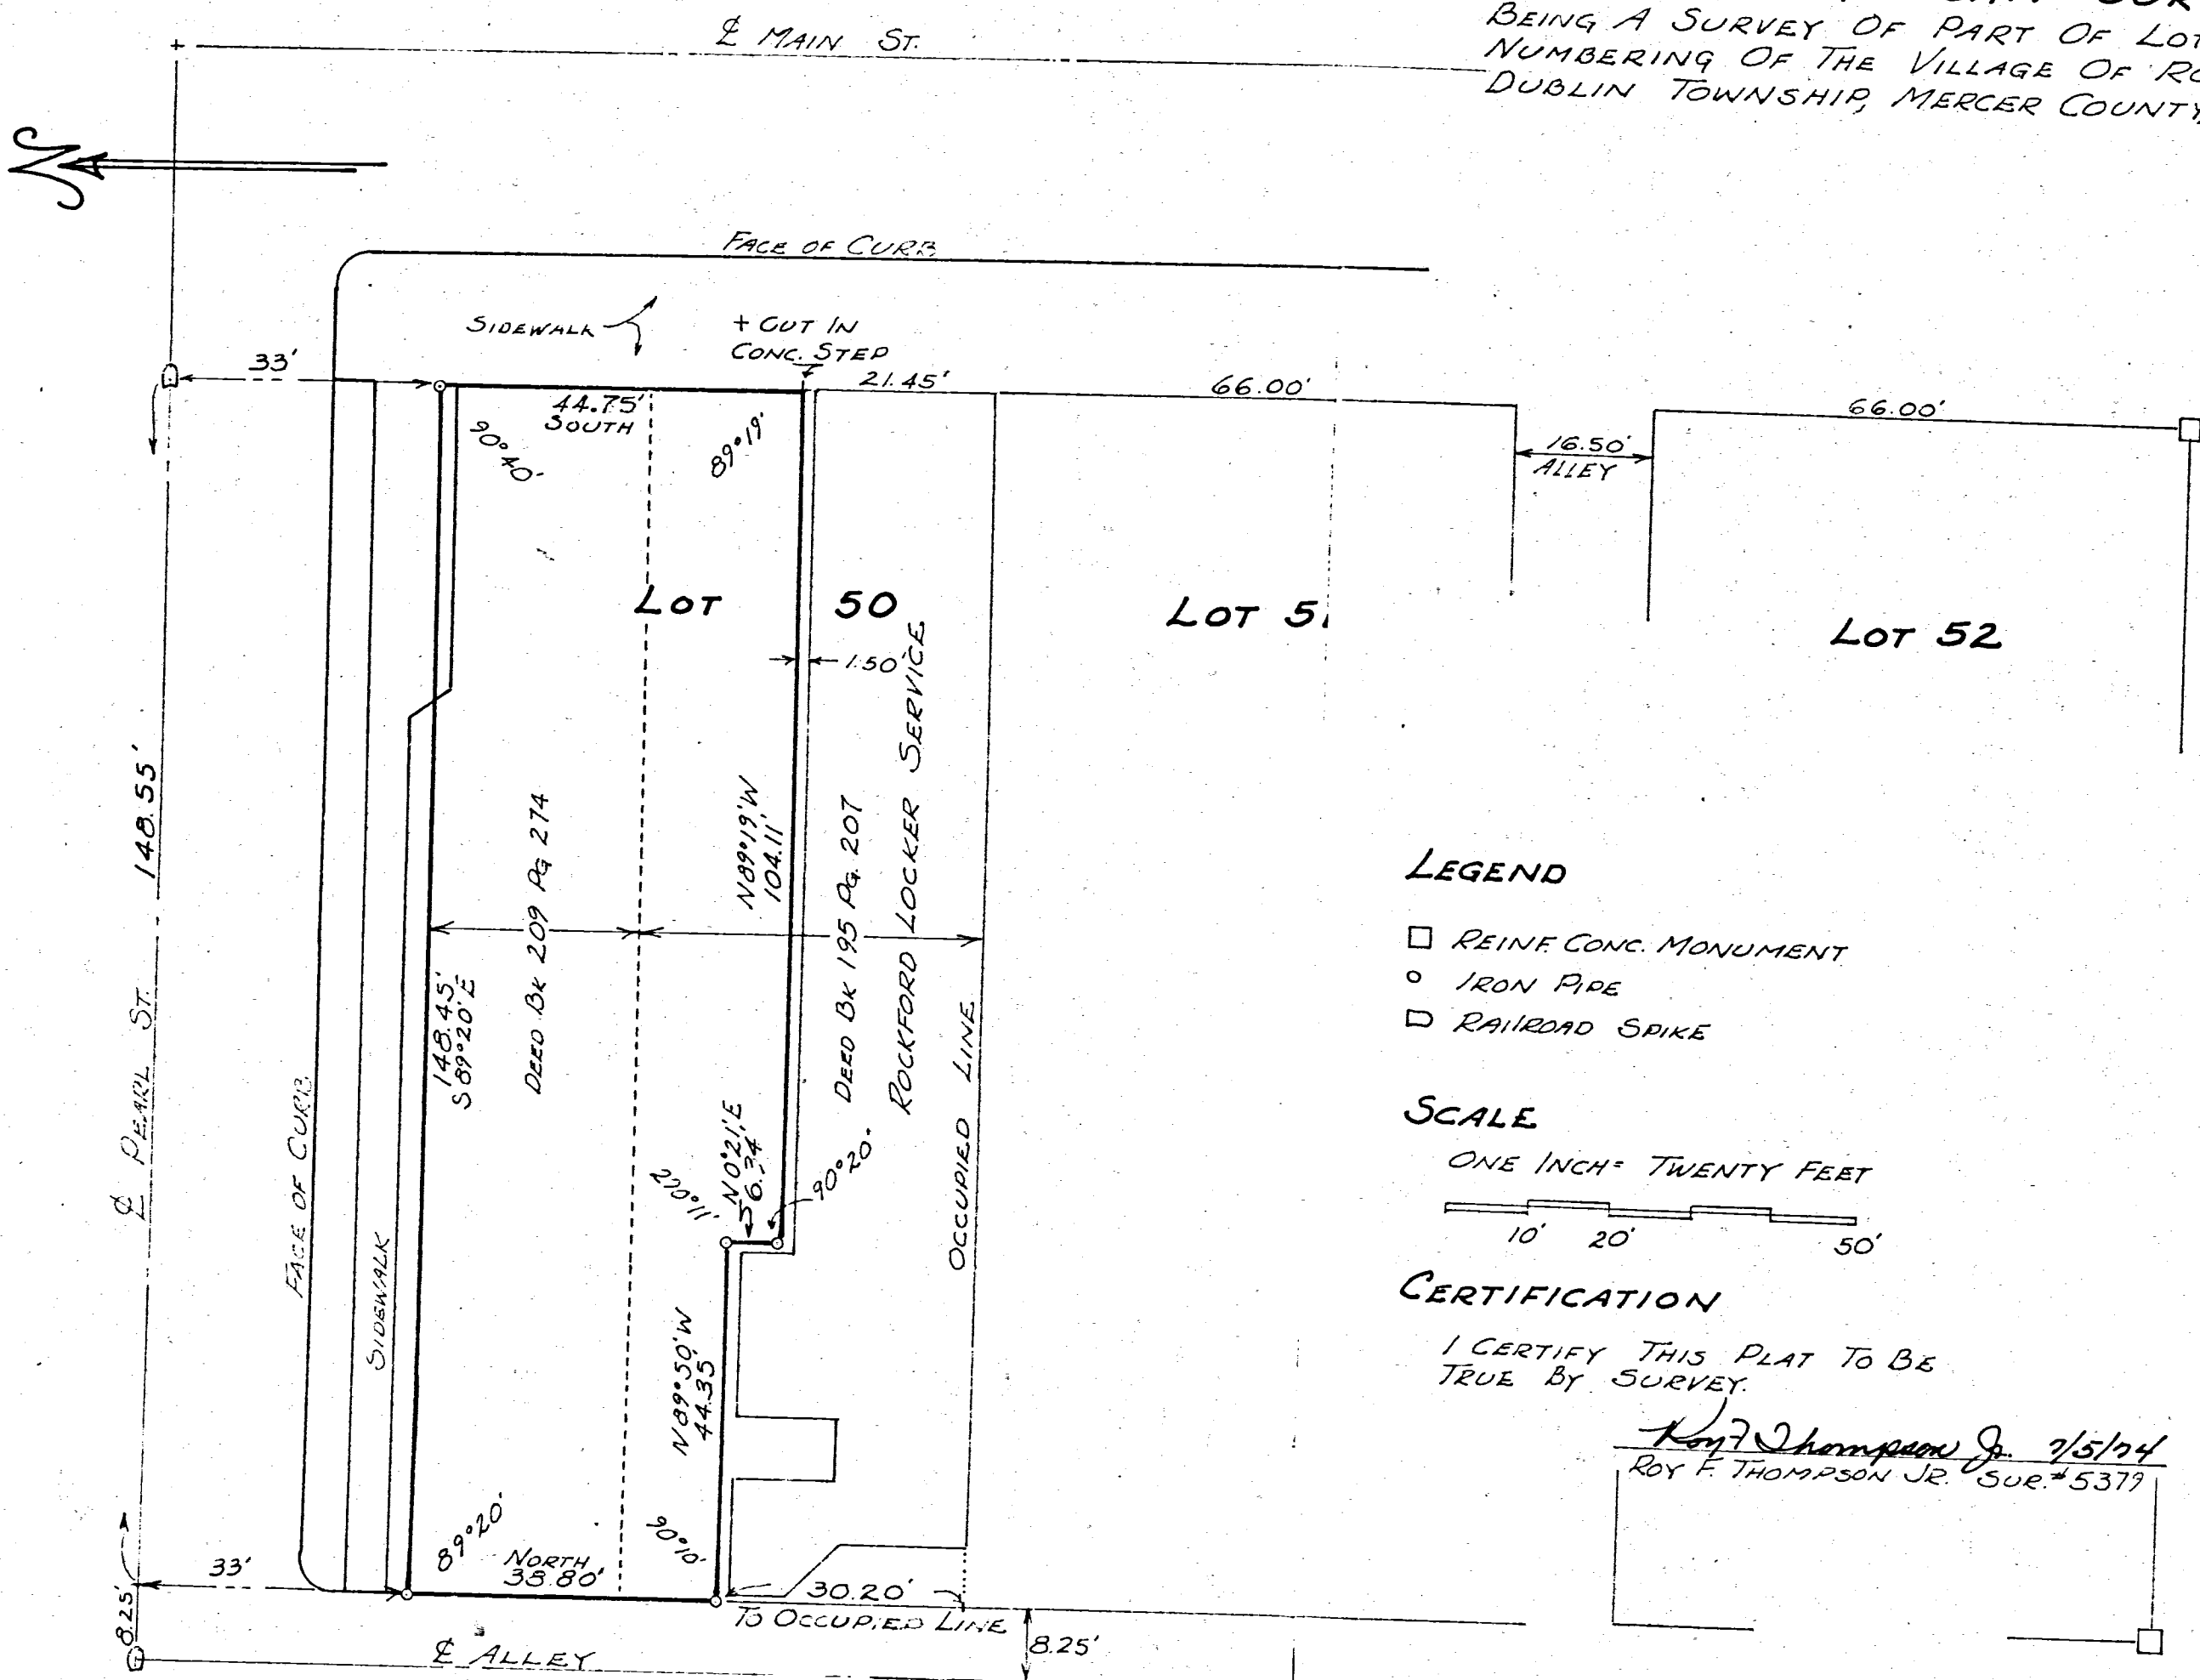 BEING A SURVEY OF PART OF LOT
NUMBERING OF THE VILLAGE OF
DUBLIN TOWNSHIP, MERCER COUNTY,
℄ MAIN ST.
FACE OF CURB
SIDEWALK
+ CUT IN
CONC. STEP
33'
21.45'
66.00'
66.00'
44.75'
SOUTH
90°40'
89°19'
16.50'
ALLEY
LOT 50
LOT 5
LOT 52
1.50'
148.55'
℄ PEARL ST.
FACE OF CURB
SIDEWALK
148.45'
S 89°20' E
DEED BK 209 PG 274
N89°19'W
104.11'
DEED BK 195 PG. 207
ROCKFORD LOCKER SERVICE
OCCUPIED LINE
N 0°21' E
6.34'
90°20'
N89°50'W
44.35
89°20'
90°10'
NORTH
33'
30.20'
TO OCCUPIED LINE
8.25'
8.25'
℄ ALLEY
LEGEND
REINF. CONC. MONUMENT
IRON PIPE
RAILROAD SPIKE
SCALE
ONE INCH = TWENTY FEET
10' 20' 50'
CERTIFICATION
I CERTIFY THIS PLAT TO BE
TRUE BY SURVEY.
Roy F Thompson Jr. 7/5/74
ROY F. THOMPSON JR. SUR. #5379